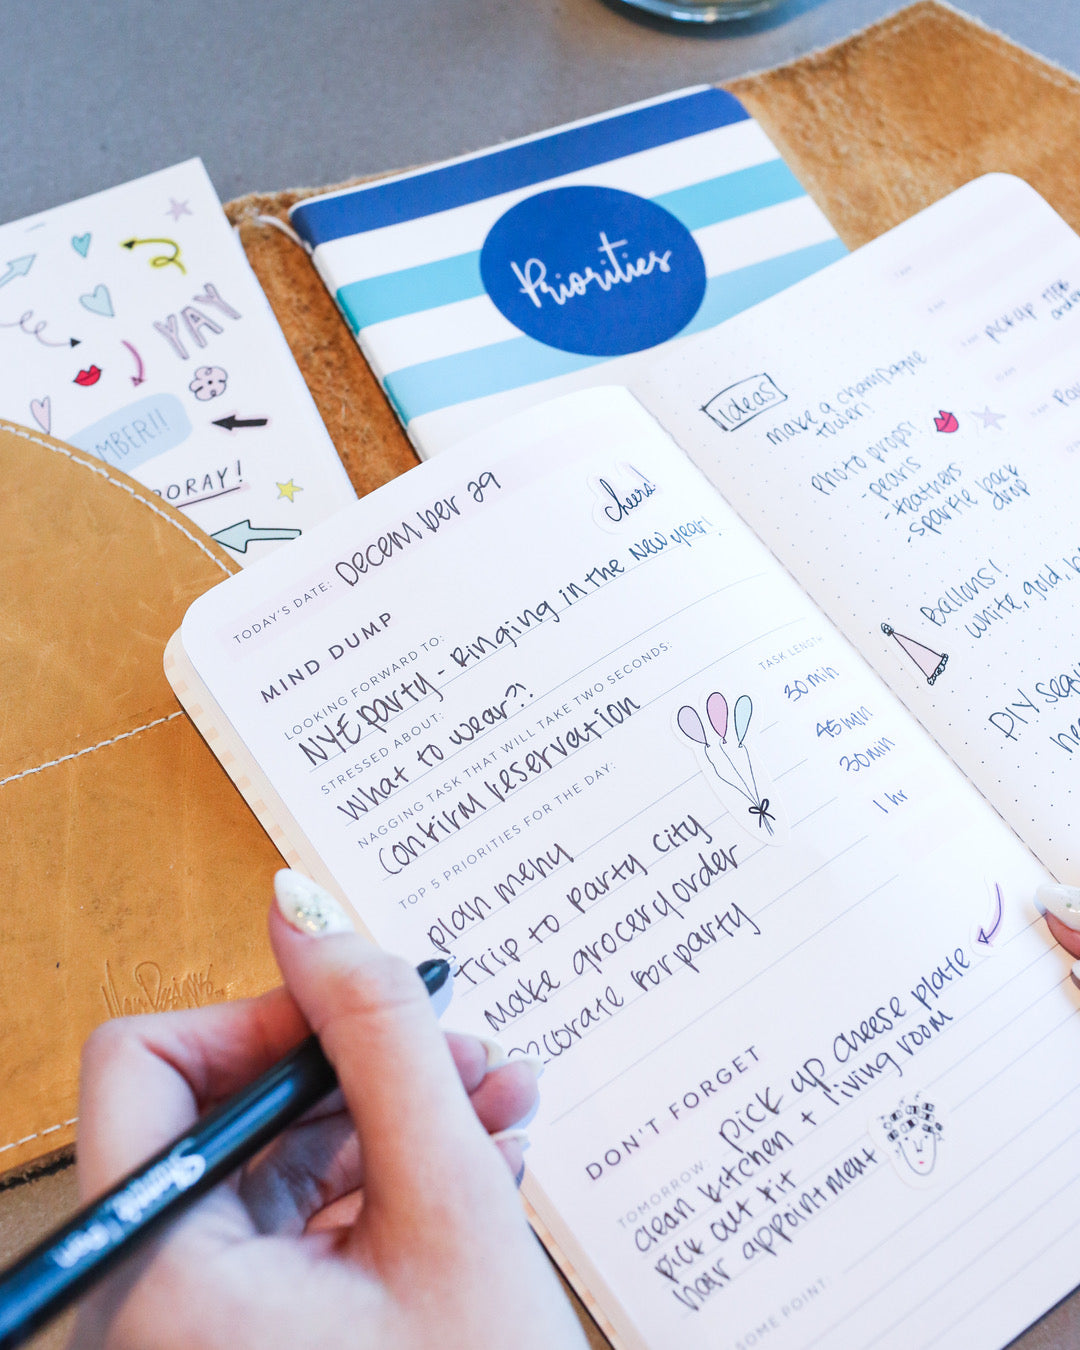 Priorities
YAY
MBER!!
OORAY!
TODAY'S DATE: December 29
cheers!
MIND DUMP
LOOKING FORWARD TO:
NYE party - Ringing in the New year!
STRESSED ABOUT:
What to wear?!
NAGGING TASK THAT WILL TAKE TWO SECONDS:
Confirm reservation
TOP 5 PRIORITIES FOR THE DAY:
TASK LENGTH
plan menu 30 min
Trip to party city 45 min
Make grocery order 30 min
Decorate for party 1 hr
DON'T FORGET
TOMORROW: pick up cheese plate
clean kitchen + living room
pick out fit
hair appointment
SOME POINT:
Ideas
make a champagne
tower!
photo props!
- pearls
- feathers
- sparkle back
drop
Ballons!
white, gold,
DIY
pick up
Sharpie Pen